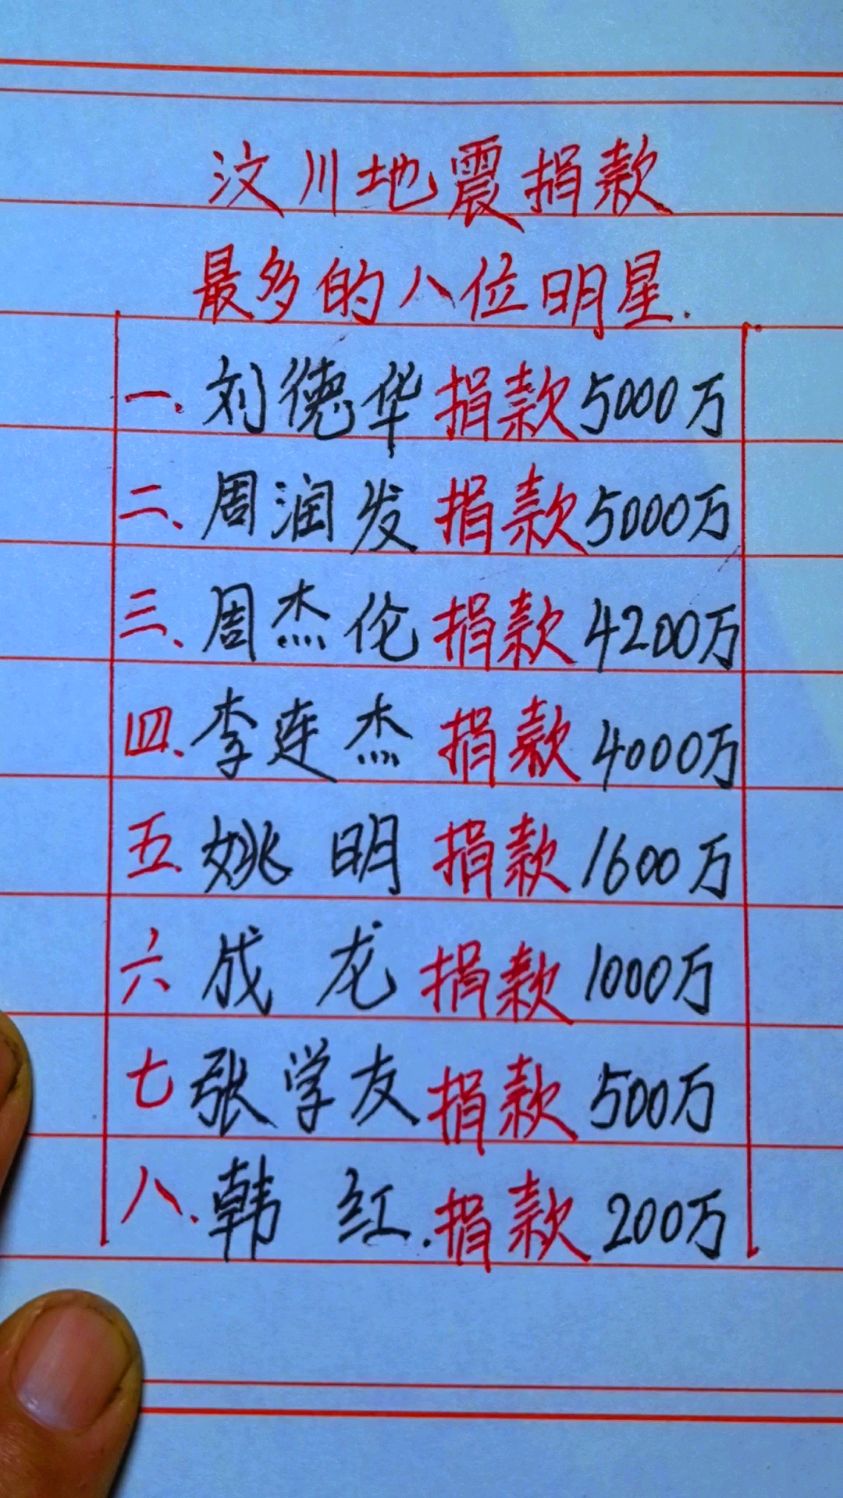 汶川地震捐款
最多的八位明星.
一.刘德华捐款5000万
二、周润发捐款5000万
三、周杰伦捐款4200万
四.李连杰捐款4000万
五.姚明捐款1600万
六成龙捐款1000万
七张学友捐款500万
八.韩红.捐款200万